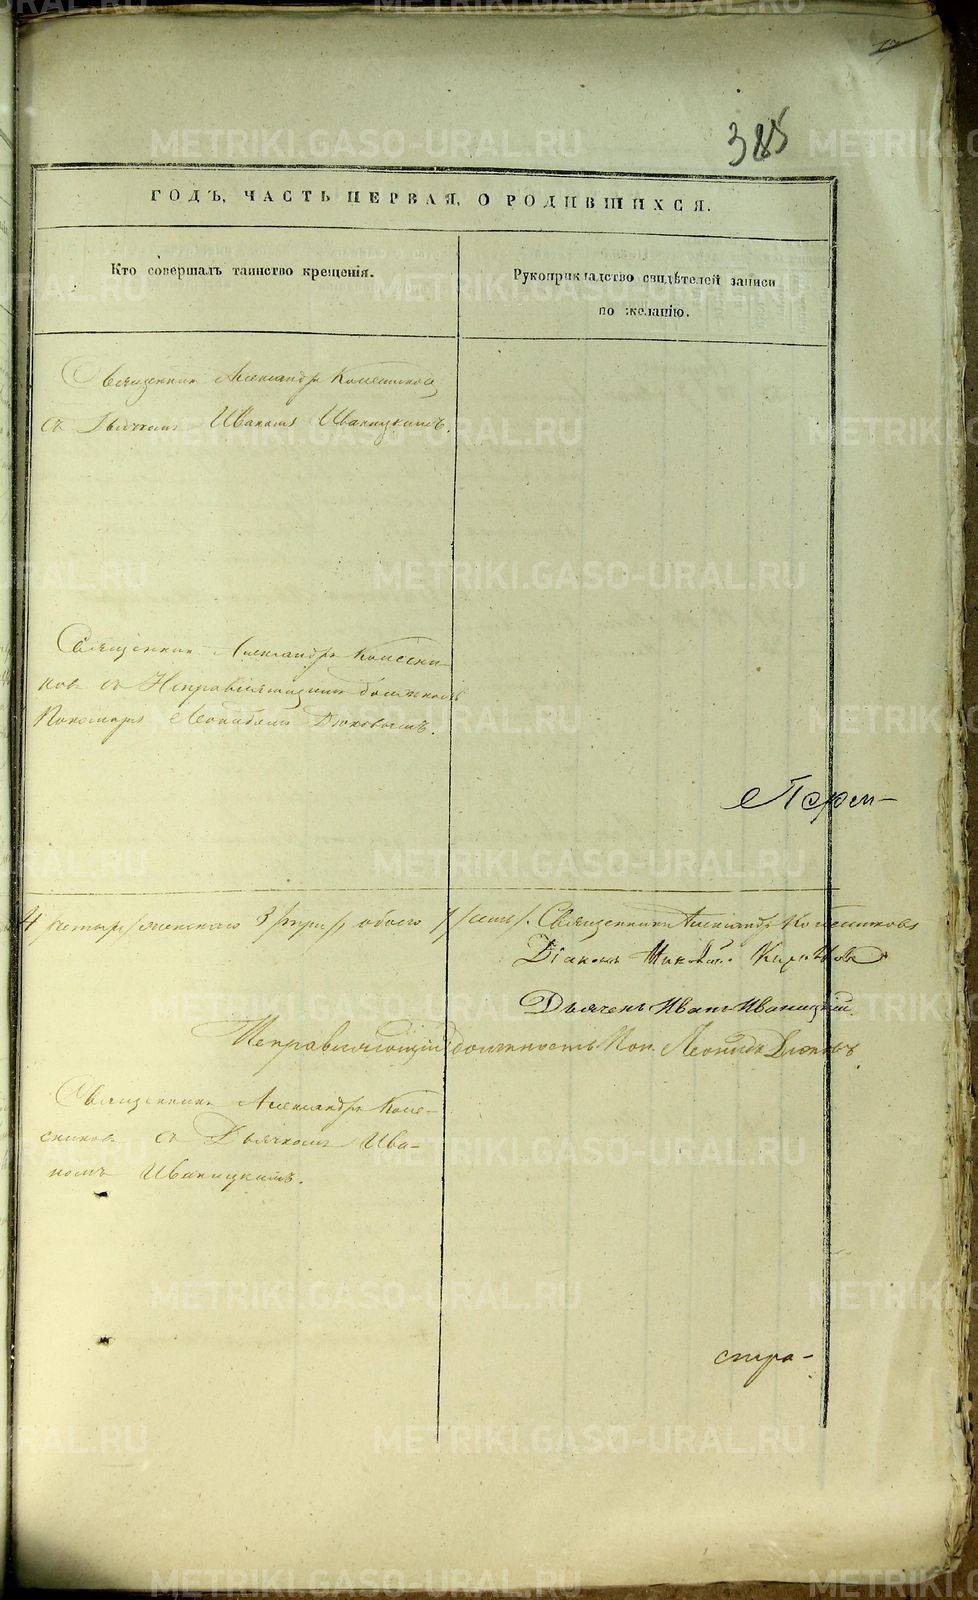 385
ГОДЪ, ЧАСТЬ ПЕРВАЯ, О РОДИВШИХСЯ.
Кто совершалъ таинство крещенія.
Рукоприкладство свидѣтелей записи
по желанію.
Священникъ Александръ Колесниковъ
съ Дьячкомъ Иваномъ Иваницкимъ.
Священникъ Александръ Колесни-
ковъ съ Исправляющимъ должность
Пономаря Леонидомъ
4 /четыре/ женскаго 3 /три/ обоего 7 /семь/. Священникъ Александръ Колесниковъ
Діаконъ Николай
Дьячекъ Иванъ Иваницкій.
Исправляющій должность Пон. Леонидъ
Священникъ Александръ Коле-
сниковъ съ Дьячкомъ Ива-
номъ Иваницкимъ.
стра-
METRIKI.GASO-URAL.RU